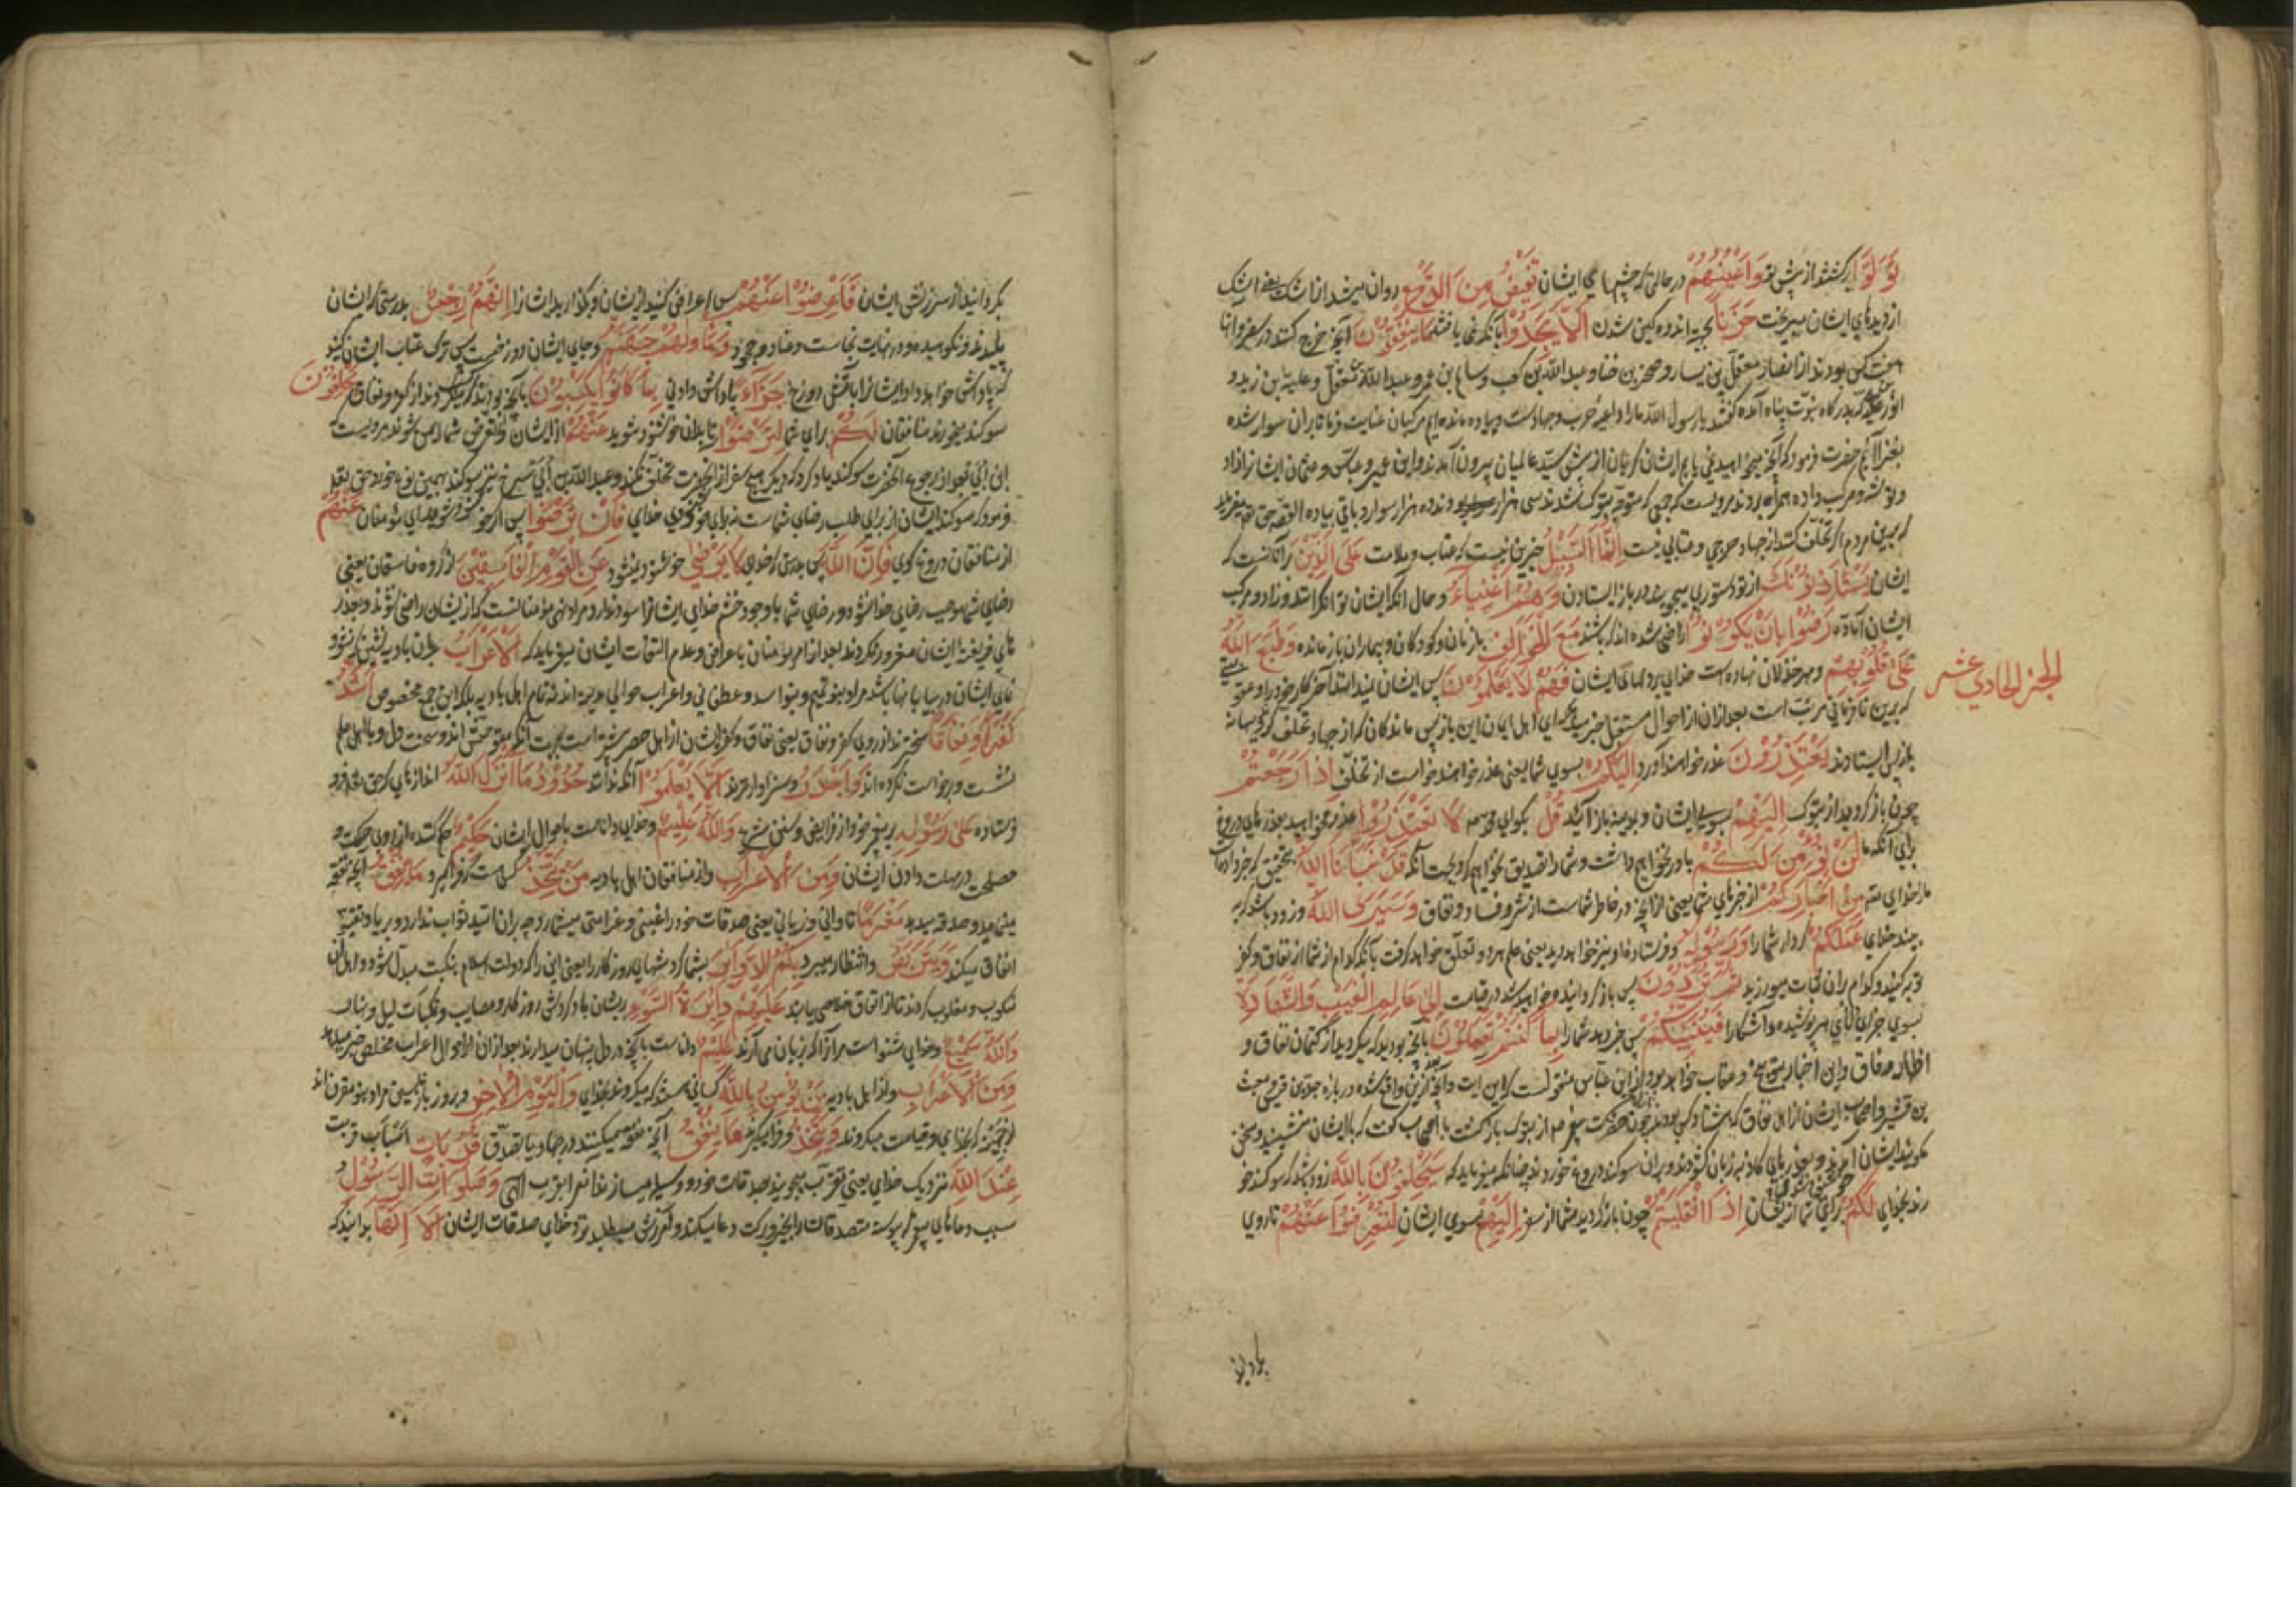 تَوَلَّوْا برگشتند از پیش تو وَاَعْیُنُهُمْ در حالتی که چشمهای ایشان تَفِیضُ مِنَ الدَّمْعِ روان میشد از اشک یعنی اشک
از دیدهای ایشان میریخت حَزَناً بجهة اندوهگین شدن اَلَّا یَجِدُوْا بآنکه نمی یافتند مَا یُنْفِقُوْنَ آنچه خرج کنند در سفر و آنها
هفت کس بودند از انصار معقل بن یسار و صخر بن خنسا و عبد الله بن کعب و سالم بن عمر و عبد الله بن مغفل و علیة بن زید و
که بدرگاه نبوت پناه آمده گفتند یا رسول الله ما را داعیهٔ حرب و جهادست و پیاده مانده ایم مرکبان عنایت فرما تا بران سوار شده
بغزا آئیم حضرت فرمود که آنچه میخواهید نمی یابم ایشان گریان از پیش سید عالمیان بیرون آمدند و ابن عمیر و عباس و عثمان ایشانرا زاد
و توشه و مرکب داده همراه بردند مرویست که جمعی که متوجه تبوک شدند سی هزار بودند ده هزار سوار و باقی پیاده القصه حق تعالی میفرماید
که برین مردم اگر تخلف کنند از جهاد حرجی و عتابی نیست اِنَّمَا السَّبِیْلُ جز این نیست که عتاب و ملامت عَلَی الَّذِیْنَ بر آنانست که
ایشان یَسْتَاْذِنُوْنَكَ از تو دستوری میجویند در باز ایستادن وَهُمْ اَغْنِیَاءُ و حال آنکه ایشان توانگرانند و زاد و مرکب
ایشان آماده رَضُوْا بِاَنْ یَكُوْنُوْا راضی شده اند که باشند مَعَ الْخَوَالِفِ با زنان و کودکان و بیماران باز مانده وَطَبَعَ اللهُ
عَلٰی قُلُوْبِهِمْ و مهر خذلان نهاده است خدای بر دلهای ایشان فَهُمْ لَا یَعْلَمُوْنَ پس ایشان نمیدانند آخر کار خود را و عقوبتی
الجزء الحادی عشر
که برین نافرمانی مرتب است بعد ازان از احوال مستقبل خبر میدهد که ای اهل ایمان این باز پس ماندگان که از جهاد تخلف کرده بهانه
باز پس ایستادند یَعْتَذِرُوْنَ عذر خواهند آورد اِلَیْكُمْ بسوی شما یعنی عذر خواهند خواست از تخلف اِذَا رَجَعْتُمْ
چون باز گردید از تبوک اِلَیْهِمْ بسوی ایشان و بمدینه باز آئید قُلْ بگو ای محمد لَا تَعْتَذِرُوْا عذر مخواهید بعذرهای دروغ
برای آنکه ما لَنْ نُؤْمِنَ لَكُمْ باور نخواهیم داشت و شما را تصدیق نخواهیم کرد بجهت آنکه قَدْ نَبَّاَنَا اللهُ بتحقیق که خبر داد
ما را خدای مِنْ اَخْبَارِكُمْ از خبرهای شما یعنی از آنچه در خاطر شماست از شر و فساد و نفاق وَسَیَرَی اللهُ و زود باشد که
بیند خدای عَمَلَكُمْ کردار شما را وَرَسُوْلُهُ و فرستادهٔ او نیز خواهد دید یعنی علم هر دو تعلق خواهد گرفت بآنکه کدام از شما از نفاق و کفر
توبه کنید و کدام بران ثبات میورزید ثُمَّ تُرَدُّوْنَ پس باز گردانیده خواهید شد در قیامت اِلٰی عَالِمِ الْغَیْبِ وَالشَّهَادَةِ
بسوی جزای دانای هر پوشیده و آشکارا فَیُنَبِّئُكُمْ پس خبر دهد شما را بِمَا كُنْتُمْ تَعْمَلُوْنَ بآنچه بودید که میکردید از کتمان نفاق و
اظهار وفاق و این اخبار بتوبیخ و عتاب خواهد بود از ابن عباس منقولست که این آیت و آنچه واقع شده در باره جد بن قیس و معتب
بن قشیر و اصحاب ایشان از اهل نفاق که هشتاد کس بودند چون حضرت پیغمبر از تبوک باز گشت با اصحاب گفت که با ایشان منشینید و سخن
مگویید ایشان آمدند و عذرهای کاذبه بزبان و بران سوگند دروغ خوردند چنانکه میفرماید که سَیَحْلِفُوْنَ بِاللهِ زود باشد که سوگند خو
رند بخدای لَكُمْ برای شما اِذَا انْقَلَبْتُمْ چون باز گردید شما از سفر اِلَیْهِمْ بسوی ایشان لِتُعْرِضُوْا عَنْهُمْ تا روی
بگردانید
بگردانید از سرزنش ایشان فَاَعْرِضُوْا عَنْهُمْ پس اعراض کنید از ایشان و بگذارید ایشانرا اِنَّهُمْ رِجْسٌ بدرستی که ایشان
پلیدند و نکوهیده و در نهایت نجاست وَمَاْوٰیهُمْ جَهَنَّمُ و جای ایشان دوزخست پس ترک عتاب ایشان کنید
که پاداش خواهد داد ایشانرا بآتش دوزخ جَزَاءً پاداش دادنی بِمَا كَانُوْا یَكْسِبُوْنَ بآنچه بودند که میکردند از کفر و نفاق یَحْلِفُوْنَ
سوگند میخورند منافقان لَكُمْ برای شما لِتَرْضَوْا تا بدان خوشنود شوید عَنْهُمْ از ایشان و از تعرض شما ایمن شوند مرویست که
ابن ابی بعد از رجوع آنحضرت سوگند یاد کرد که دیگر در هیچ سفر از آنحضرت تخلف نکند و عبد الله بن ابی سرح نیز سوگند بهمین نوع خورد حق تعالی
فرمود که سوگند ایشان از برای طلب رضای شماست نه برای خوشنودی خدای فَاِنْ تَرْضَوْا پس اگر خوشنود شوید ای مؤمنان عَنْهُمْ
از منافقان دروغ گوی فَاِنَّ اللهَ پس بدرستی که خدای لَا یَرْضٰی خوشنود نمیشود عَنِ الْقَوْمِ الْفَاسِقِیْنَ از گروه فاسقان یعنی
رضای شما موجب رضای خدا نشود و رضای شما با وجود خشم خدای ایشانرا سود ندارد و مراد نهی مؤمنانست که از ایشان راضی نشوند و بعذر
های فریفتهٔ ایشان مغرور نگردند بعد از امر مؤمنان باعراض و عدم التفات ایشان میفرماید که اَلْاَعْرَابُ عربان بادیه نشین که نشو و
نمای ایشان در بیابانها باشد مراد بنو تمیم و بنو اسد و غطفانی و اعراب حوالی مدینه اند نه تمام اهل بادیه بلکه این جمع مخصوص اَشَدُّ
كُفْرًا وَنِفَاقًا سخت ترند از روی کفر و نفاق یعنی نفاق و کفر ایشان از اهل حضر بیشتر است بجهت آنکه متوحش اند و سخت دل و با اهل علم
نشست و برخاست نکرده اند وَاَجْدَرُ و سزاوارترند اَلَّا یَعْلَمُوْا آنکه ندانند حُدُوْدَ مَا اَنْزَلَ اللهُ اندازهای که حق تعالی فرو
فرستاده عَلٰی رَسُوْلِهِ بر پیغمبر خود از فرایض و سنن وَاللهُ عَلِیْمٌ و خدای داناست باحوال ایشان حَكِیْمٌ حکم کننده از روی حکمت و
مصلحت در مهلت دادن ایشان وَمِنَ الْاَعْرَابِ و از منافقان اهل بادیه مَنْ یَتَّخِذُ کس هست که فرا گیرد مَا یُنْفِقُ آنچه نفقه
مینماید و صدقه میدهد مَغْرَمًا تاوانی و زیانی یعنی صدقات خود را غبنی و غرامتی میشمارد چه بران امید ثواب ندارد و بریا و تقیه
انفاق میکند وَیَتَرَبَّصُ و انتظار میبرد بِكُمُ الدَّوَائِرَ بشما گردشهای روزگار را یعنی این را که دولت اسلام بنکبت مبدل شود و اهل آن
منکوب و مغلوب گردند تا از انفاق خلاصی یابند عَلَیْهِمْ دَائِرَةُ السَّوْءِ بریشان باد گردش روزگار و مصایب و نکبات لیل و نهار
وَاللهُ سَمِیْعٌ و خدای شنواست مر آنرا که بزبان می آرند عَلِیْمٌ داناست بآنچه در دل پنهان میدارند بعد ازان از احوال اعراب مخلص خبر میدهد
وَمِنَ الْاَعْرَابِ و از اهل بادیه مَنْ یُؤْمِنُ بِاللهِ کسانی هستند که میگروند بخدای وَالْیَوْمِ الْاٰخِرِ و بروز باز پسین مراد بنو مقرن اند
از مزینه که بخدای و قیامت میگروند وَیَتَّخِذُ و فرا میگیرند مَا یُنْفِقُ آنچه نفقه میکنند در جهاد یا بتصدق قُرُبَاتٍ اکتساب قربت
عِنْدَ اللهِ نزدیک خدای یعنی تقرب میجویند بصدقات خود و وسیله میسازند آنرا بقرب الهی وَصَلَوَاتِ الرَّسُوْلِ و
سبب دعاهای پیغمبر که پیوسته متصدقان را بخیر و برکت دعا میکند و آمرزش میطلبد نزد خدای صدقات ایشان اَلَا اِنَّهَا بدانید که